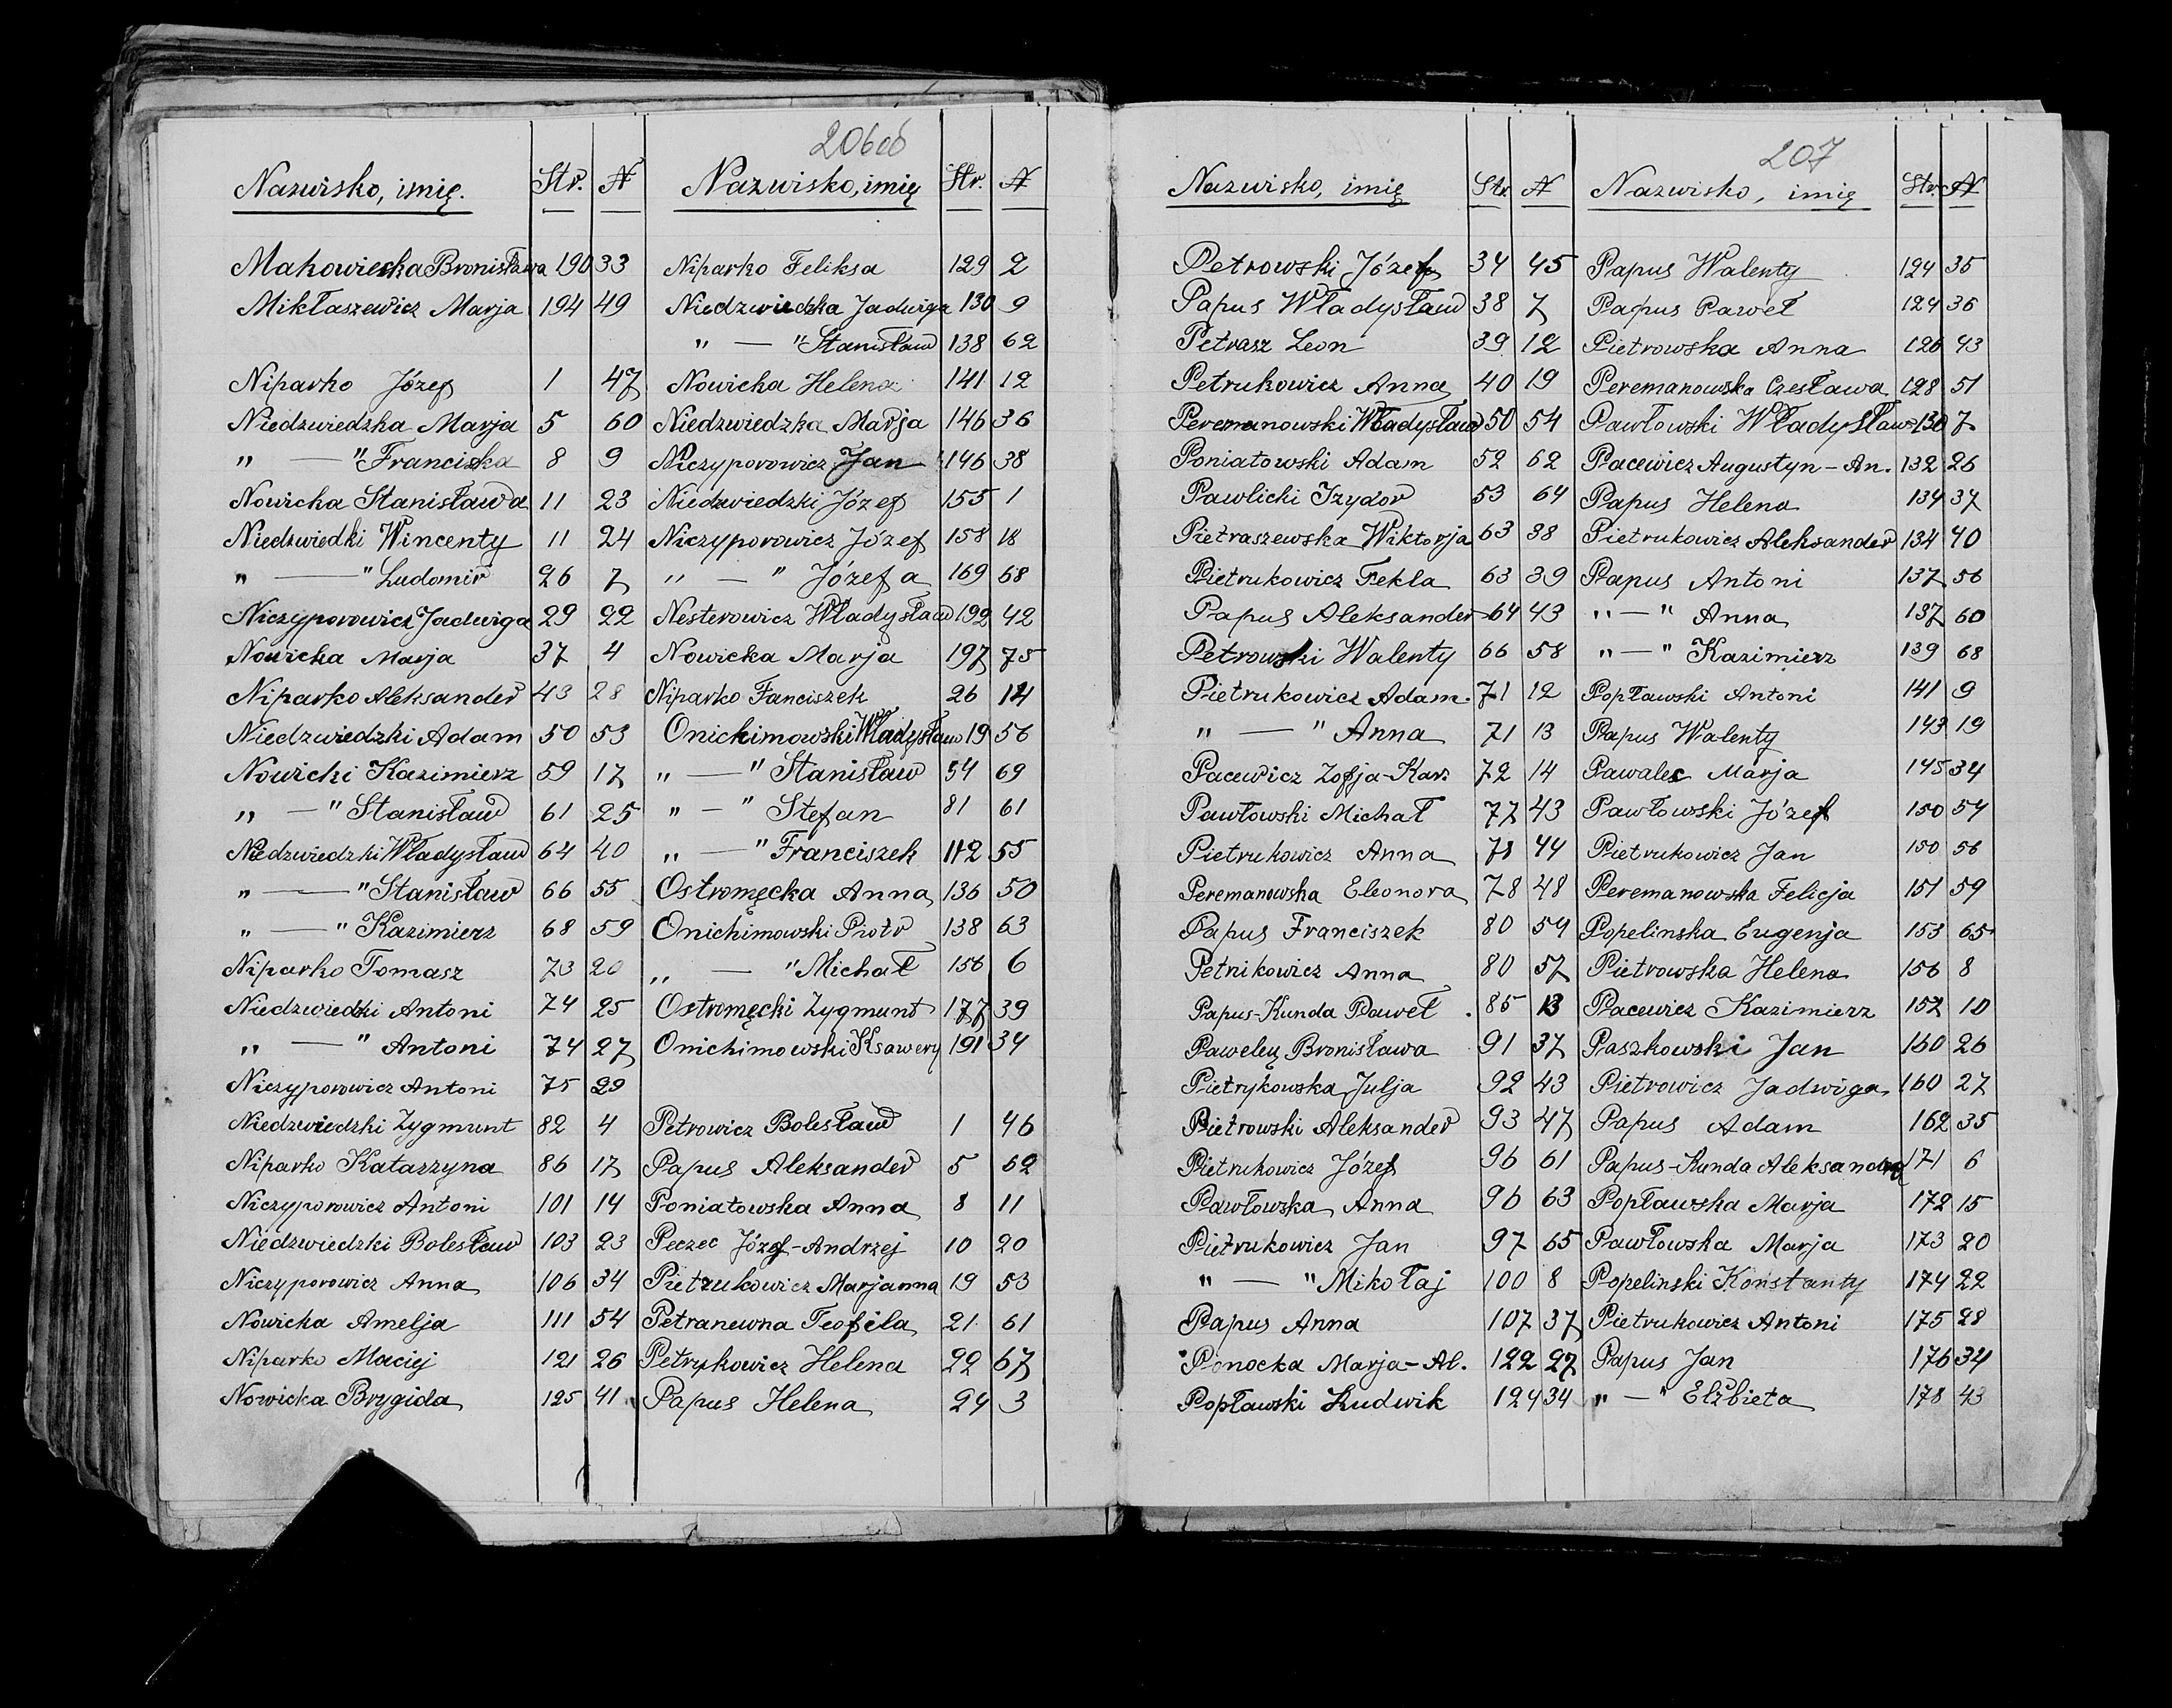 206об
Nazwisko, imię. Str. №
Makowiecka Bronisława 190 33
Mikłaszewicz Marja 194 49
Niparko Józef 1 47
Niedzwiedzka Marja 5 60
" — " Franciska 8 9
Nowicka Stanisława 11 23
Niedzwiedki Wincenty 11 24
" — " Ludomir 26 7
Niczyporowicz Jadwiga 29 22
Nowicka Marja 37 4
Niparko Aleksander 43 28
Niedzwiedzki Adam 50 53
Nowicki Kazimierz 59 17
" — " Stanisław 61 25
Niedzwiedzki Władysław 64 40
" — " Stanisław 66 55
" — " Kazimierz 68 59
Niparko Tomasz 73 20
Niedzwiedzki Antoni 74 25
" — " Antoni 74 27
Niczyporowicz Antoni 75 29
Niedzwiedzki Zygmunt 82 4
Niparko Katarzyna 86 17
Niczyporowicz Antoni 101 14
Niedzwiedzki Bolesław 103 23
Niczyporowicz Anna 106 34
Nowicka Amelja 111 54
Niparko Maciej 121 26
Nowicka Brygida 125 41
Nazwisko, imię Str. №
Niparko Feliksa 129 2
Niedzwiedzka Jadwiga 130 9
" — " Stanisław 138 62
Nowicka Helena 141 12
Niedzwiedzka Marja 146 36
Niczyporowicz Jan 146 38
Niedzwiedzki Józef 155 1
Niczyporowicz Józef 158 18
" — " Józefa 169 68
Nesterowicz Władysław 192 42
Nowicka Marja 197 75
Niparko Fanciszek 26 14
Onichimowski Władysław 19 56
" — " Stanisław 54 69
" — " Stefan 81 61
" — " Franciszek 112 55
Ostromęcka Anna 136 50
Onichimowski Piotr 138 63
" — " Michał 156 6
Ostromęcki Zygmunt 177 39
Onichimowski Ksawery 191 34
Petrowicz Bolesław 1 46
Papus Aleksander 5 62
Poniatowska Anna 8 11
Peczec Józef-Andrzej 10 20
Pietrukowicz Marjanna 19 53
Petranewna Teofila 21 61
Petrykowicz Helena 22 67
Papus Helena 24 3
207
Nazwisko, imię Str. №
Petrowski Józef 34 45
Papus Władysław 38 7
Petrasz Leon 39 12
Petrukowicz Anna 40 19
Peremanowski Władysław 50 54
Poniatowski Adam 52 62
Pawlicki Izydor 53 64
Pietraszewska Wiktorja 63 38
Pietrukowicz Tekla 63 39
Papus Aleksander 64 43
Petrowski Walenty 66 58
Pietrukowicz Adam. 71 12
" — " Anna 71 13
Pacewicz Zofja-Kar. 72 14
Pawłowski Michał 77 43
Pietrukowicz Anna 78 44
Peremanowska Eleonora 78 48
Papus Franciszek 80 54
Petrukowicz Anna 80 57
Papus-Kunda Paweł 85 13
Bronisława 91 37
Pietrykowska Julja 92 43
Pietrowski Aleksander 93 47
Pietrukowicz Józef 96 61
Pawłowska Anna 96 63
Pietrukowicz Jan 97 65
" — " Mikołaj 100 8
Papus Anna 107 37
Ponocka Marja-Al. 122 27
Popławski Ludwik 124 34
Nazwisko, imię Str. №
Papus Walenty 124 35
Papus Paweł 124 36
Pietrowska Anna 126 43
Peremanowska Czesława 128 51
Pawłowski Władysław 130 7
Pacewicz Augustyn-An. 132 26
Papus Helena 134 37
Pietrukowicz Aleksander 134 40
Papus Antoni 137 56
" — " Anna 137 60
" — " Kazimierz 139 68
Popławski Antoni 141 9
Papus Walenty 143 19
Pawalec Marja 145 34
Pawłowski Józef 150 54
Pietrukowicz Jan 150 56
Peremanowska Felicja 151 59
Popelinska Eugenja 153 65
Pietrowska Helena 156 8
Pacewicz Kazimierz 152 10
Paszkowski Jan 160 26
Pietrowicz Jadwiga 160 27
Papus Adam 162 35
Papus-Kunda Aleksandra 171 6
Popławska Marja 172 15
Pawłowska Marja 173 20
Popelinski Konstanty 174 22
Pietrukowicz Antoni 175 28
Papus Jan 176 34
" — " Elżbieta 178 43